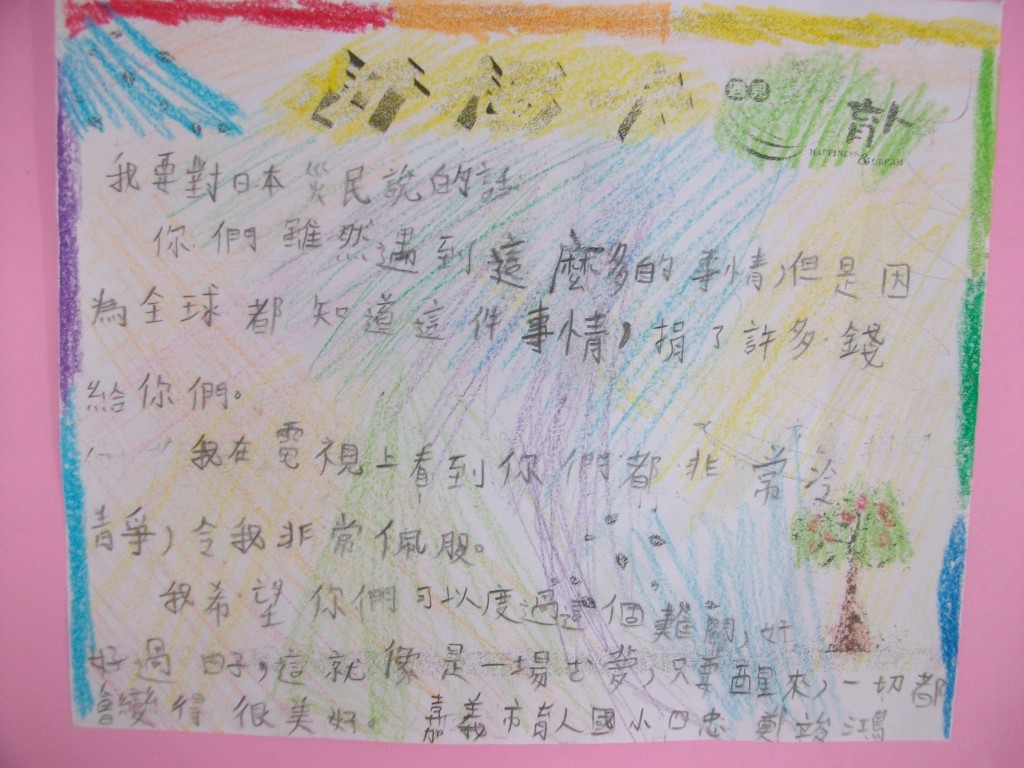 遇見
育人
HAPPINESS & DREAM
我要對日本災民說的話
你們雖然遇到這麼多的事情,但是因
為全球都知道這件事情,捐了許多錢
給你們。
我在電視上看到你們都非常冷
靜,令我非常佩服。
我希望你們可以度過這個難關,好
好過日子,這就像是一場惡夢,只要醒來,一切都
會變得很美好。 嘉義市育人國小四忠 鄭竣鴻